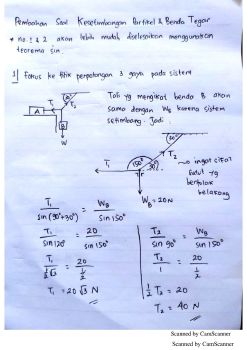 Pembahasan Soal Kesetimbangan Partikel & Benda Tegar
* no. 1 & 2 akan lebih mudah diselesaikan menggunakan
teorema sin.
1] Fokus ke titik perpotongan 3 gaya pada sistem
Tali yg mengikat benda B akan
sama dengan W_B karena sistem
setimbang. Jadi :
60°
T₁
T₂
A
B
W
60°
T₂
150°
30°
T₁
W_B = 20 N
→ ingat sifat
sudut yg
bertolak
belakang
T₁ / sin (90°+30°) = W_B / sin 150°
T₁ / sin 120 = 20 / sin 150
T₁ / ½√3 = 20 / ½
T₁ = 20 √3 N
T₂ / sin 90° = W_B / sin 150°
T₂ / 1 = 20 / ½
½ T₂ = 20
T₂ = 40 N
Scanned by CamScanner
Scanned by CamScanner